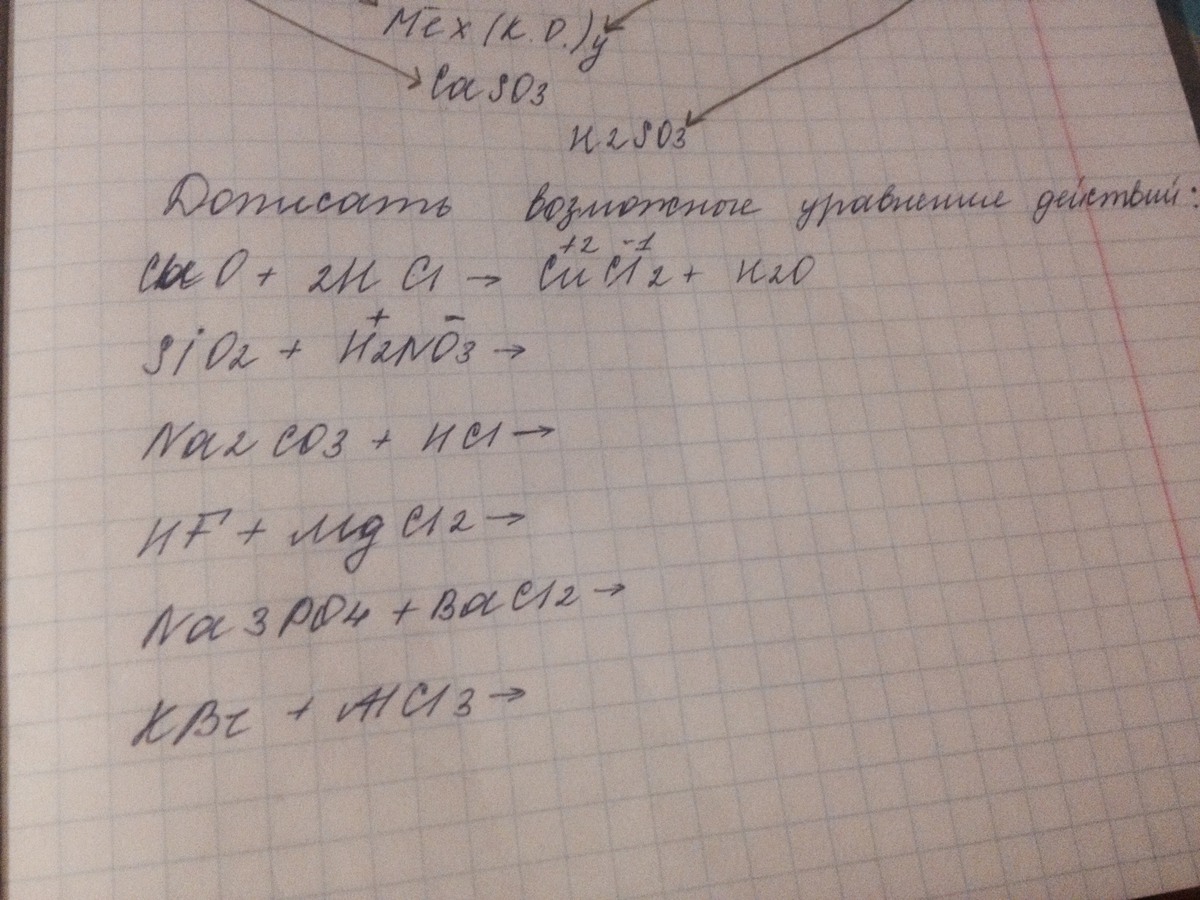 Mex(K.O.)y
CaSO3
H2SO3
Дописать возможные уравнение действий:
CuO + 2HCl → CuCl2 + H2O
+2 -1
SiO2 + H2NO3 →
+ -
Na2CO3 + HCl →
HF + MgCl2 →
Na3PO4 + BaCl2 →
KBr + AlCl3 →